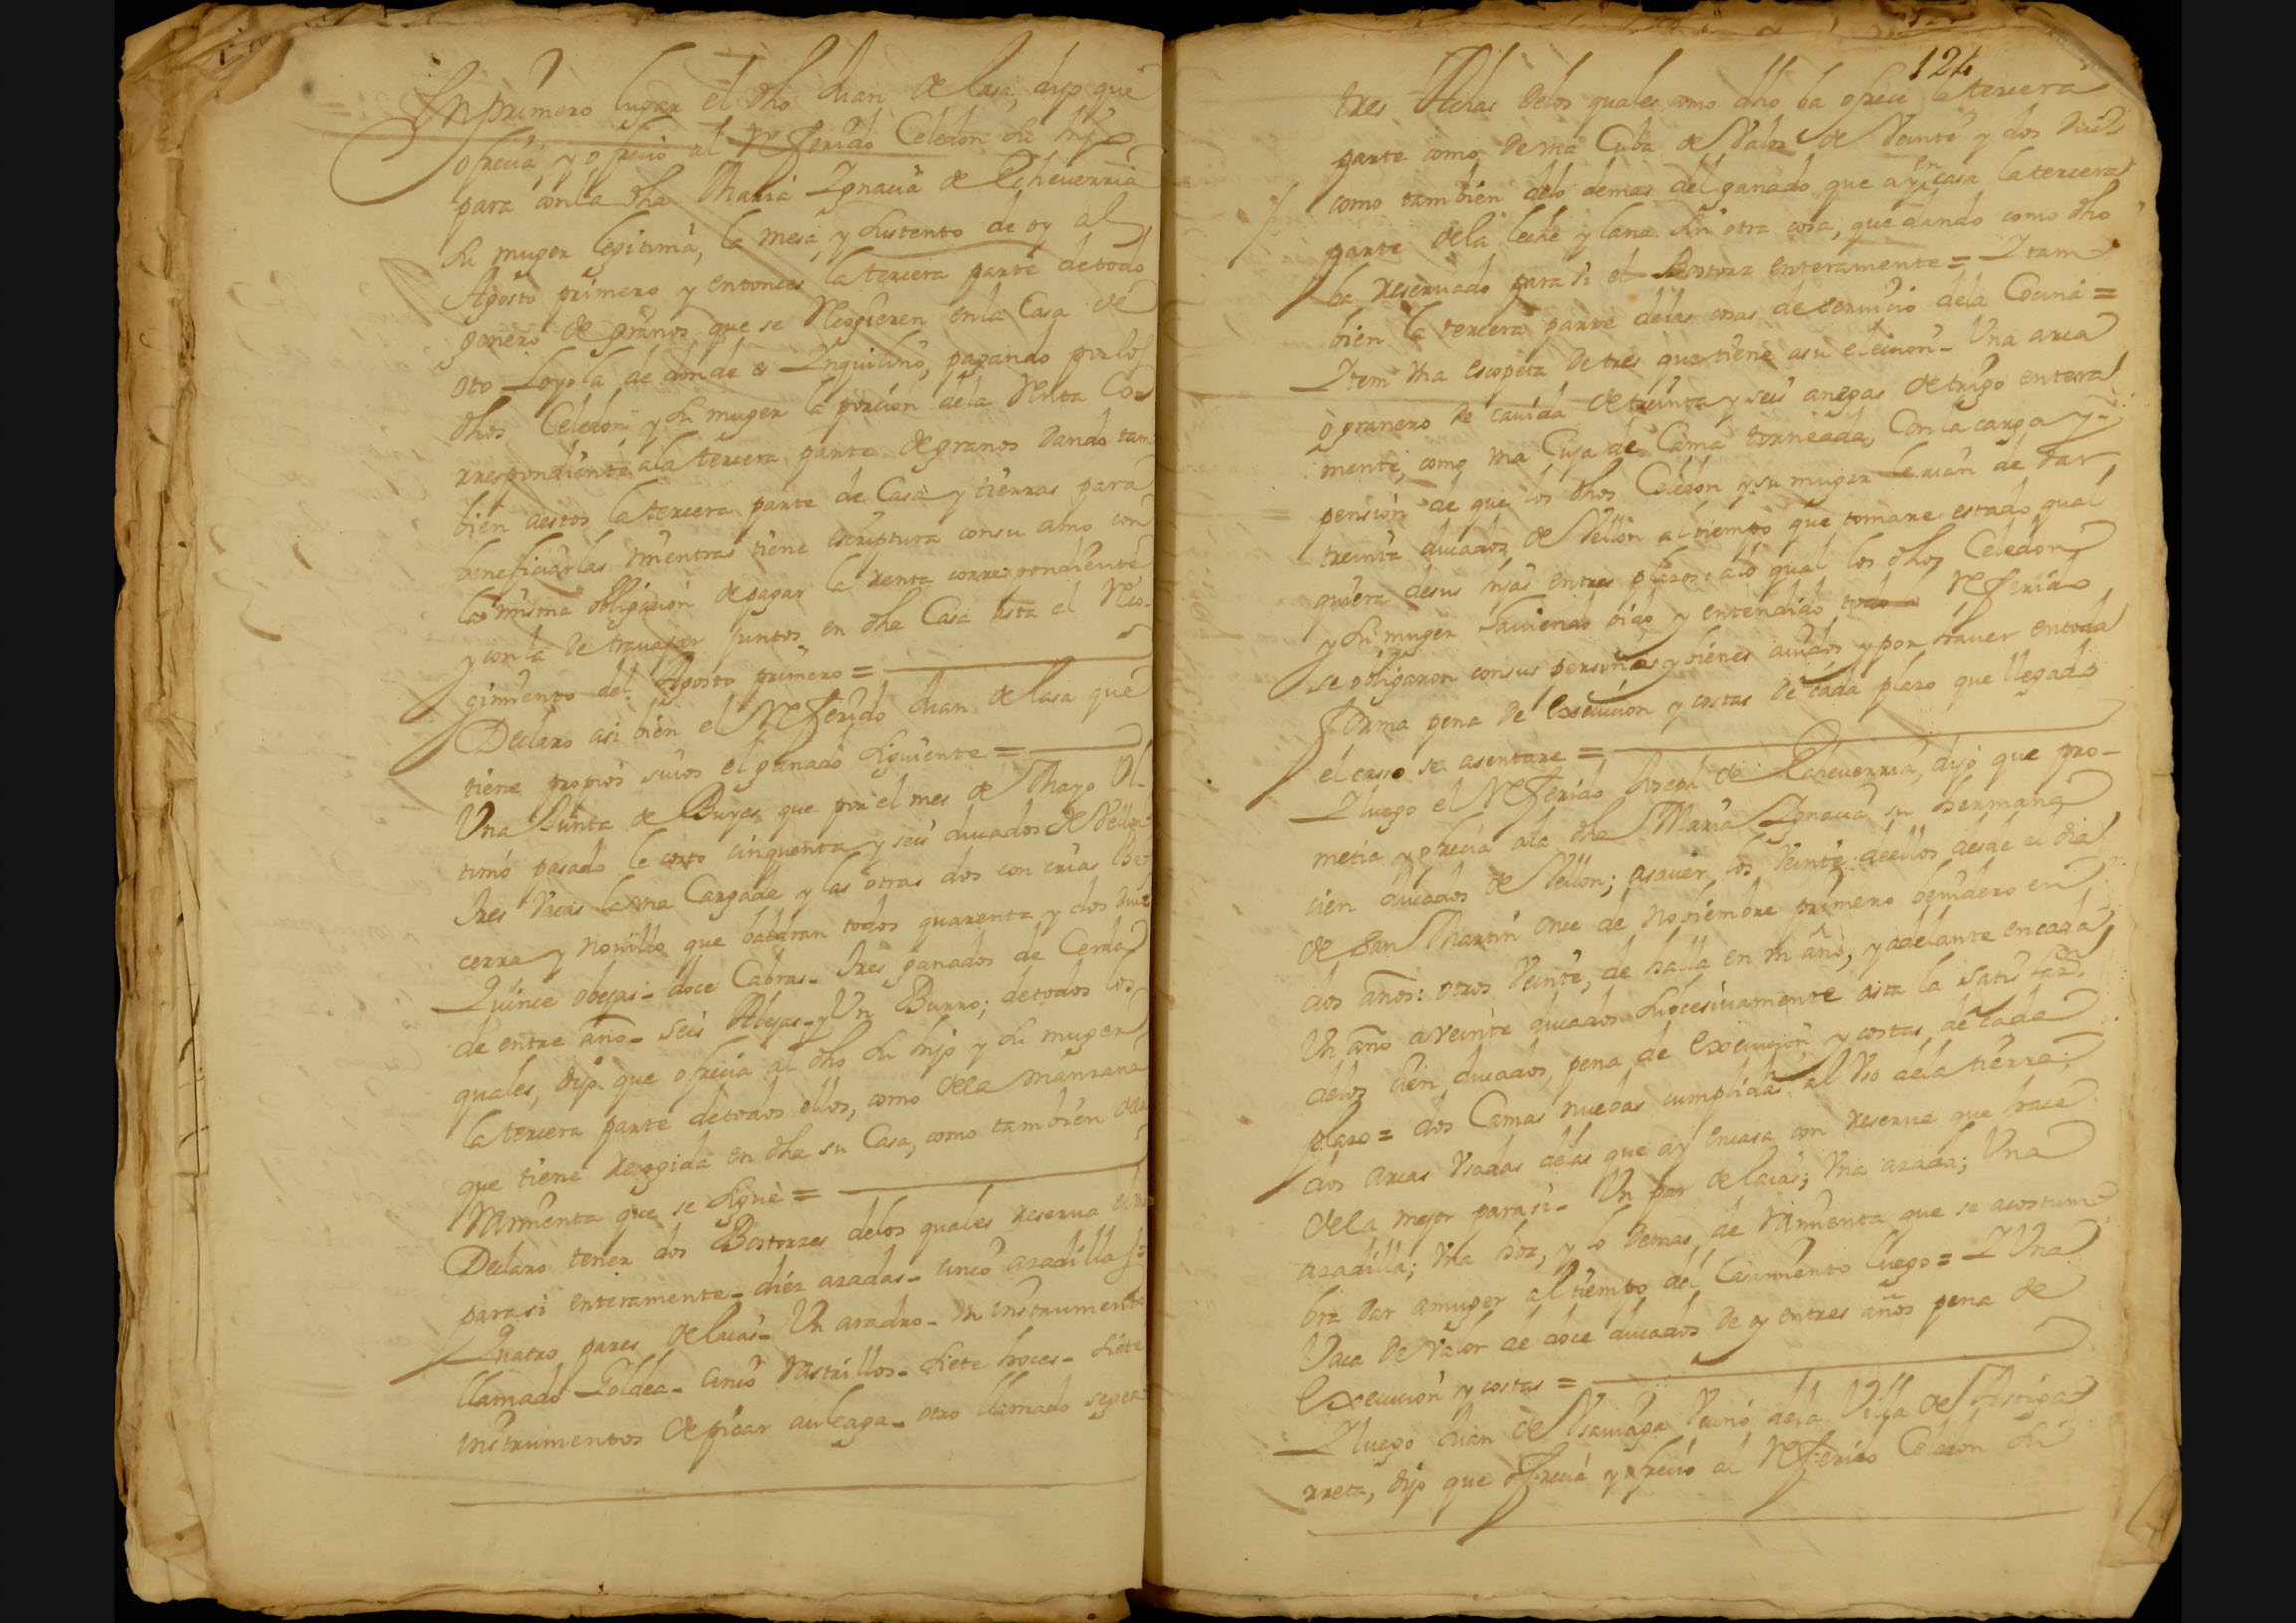 En primero lugar el dho Juan de lasa, dijo que
ofrecia, y ofrecio al referido Celedon su hijo
para con la dha Maria Ignacia de Echeuerria
su muger legitima, la mesa, y sustento de oy al
Agosto primero y entonces la tercera parte de todo
genero de granos, que se recogieren en la Casa de
Loyola de donde es Inquilino, pagando por los
dhos Celedon y su muger la porcion de la renta Co-
rrespondiente a la tercera parte de granos dando tam
bien a estos la tercera parte de Casa y tierras para
beneficiarlas mientras tiene escriptura con su amo con
la misma obligacion de pagar la renta correspondiente
y con la de trauajar juntos en dha Casa asta el reco-
gimiento del Agosto primero =
Declaro asi bien el referido Juan de lasa que
tiene propios suios el ganado siguiente =
Una Junta de Buyes que por el mes de Mayo Ul-
timo pasado le costo cinquenta y seis ducados de Vellon
Tres Vacas la una Cargada y las otras dos con crias Be-
cerra y nouillo que baldran todos quarenta y dos ducs
Quince obejas - doce Cabras - Tres ganados de Cerda
de entre año - seis Abejas - y Un Burro; de todos los
quales, dijo que ofrecia al dho su hijo y su muger
la tercera parte de todos ellos, como de la manzana
que tiene recogida en dha su Casa, como tambien de la
rrimienta que se sigue =
Declaro tener dos Bostorzes de los quales reserua
para si enteramente - diez azadas - cinco azadillas =
Quatro pares de laias - Un aradro - un instrumento
llamado Goldea - cinco rastrillos - siete hoces - siete
instrumentos de picar auleaga - otro llamado segea
124
tres Achas de los quales como dho ba ofrece la tercera
parte como de una Cuba de Valor de Veinte y dos ducs
como tambien de lo demas del ganado que ay en casa la tercera
parte de la leche y lana sin otra cosa, quedando como dho
ba reseruado para si el Bostorz enteramente = Y tam
bien la tercera parte de las cosas de seruicio de la Cocina =
Iten una escopeta de tres que tiene a su eleccion - Una arca
o granero de cauida de treinta y seis anegas de trigo entera
mente, como una Cuja de Cama torneada, Con la carga y
pension de que los dhos Celedon y su muger le aian de dar
treinta ducados de Vellon al tiempo que tomare estado qual
quiera de sus hijas en tres plazos: a lo qual los dhos Celedon
y su muger hauiendo oido y entendido todo lo referido
se obligaron con sus personas y bienes auidos y por hauer en toda
forma pena de execucion y costas de cada plazo que llegado
el caso se asentare =
Y luego el referido Joseph de Echeuerria, dijo que pro-
metia y ofrecia a la dha Maria Ignacia su hermana
cien ducados de Vellon; a sauer, los Veinte de ellos desde el dia
de San Martin once de Nobiembre primero benidero en
dos años: otros Veinte, de halla en un año, y adelante en cada
Un año a veinte ducados subcesiuamente asta la satisfaon
de los cien ducados, pena de execucion y costas de cada
plazo = dos Camas nuebas cumplidas al Uso de la tierra:
dos arcas Usadas de las que ay en casa con reserua que hace
de la mejor para si - Un par de laias; Una azada; Una
azadilla; Una hoz, y lo demas de rrimienta que se acostum
bra dar a muger al tiempo del Casamiento luego = Y Una
Vaca de Valor de doce ducados de oy en tres años pena de
Execucion y costas =
Y luego Juan de Vecino de la Villa de Astiga
rreta, dijo que ofrecia y ofrecio al referido Celedon su